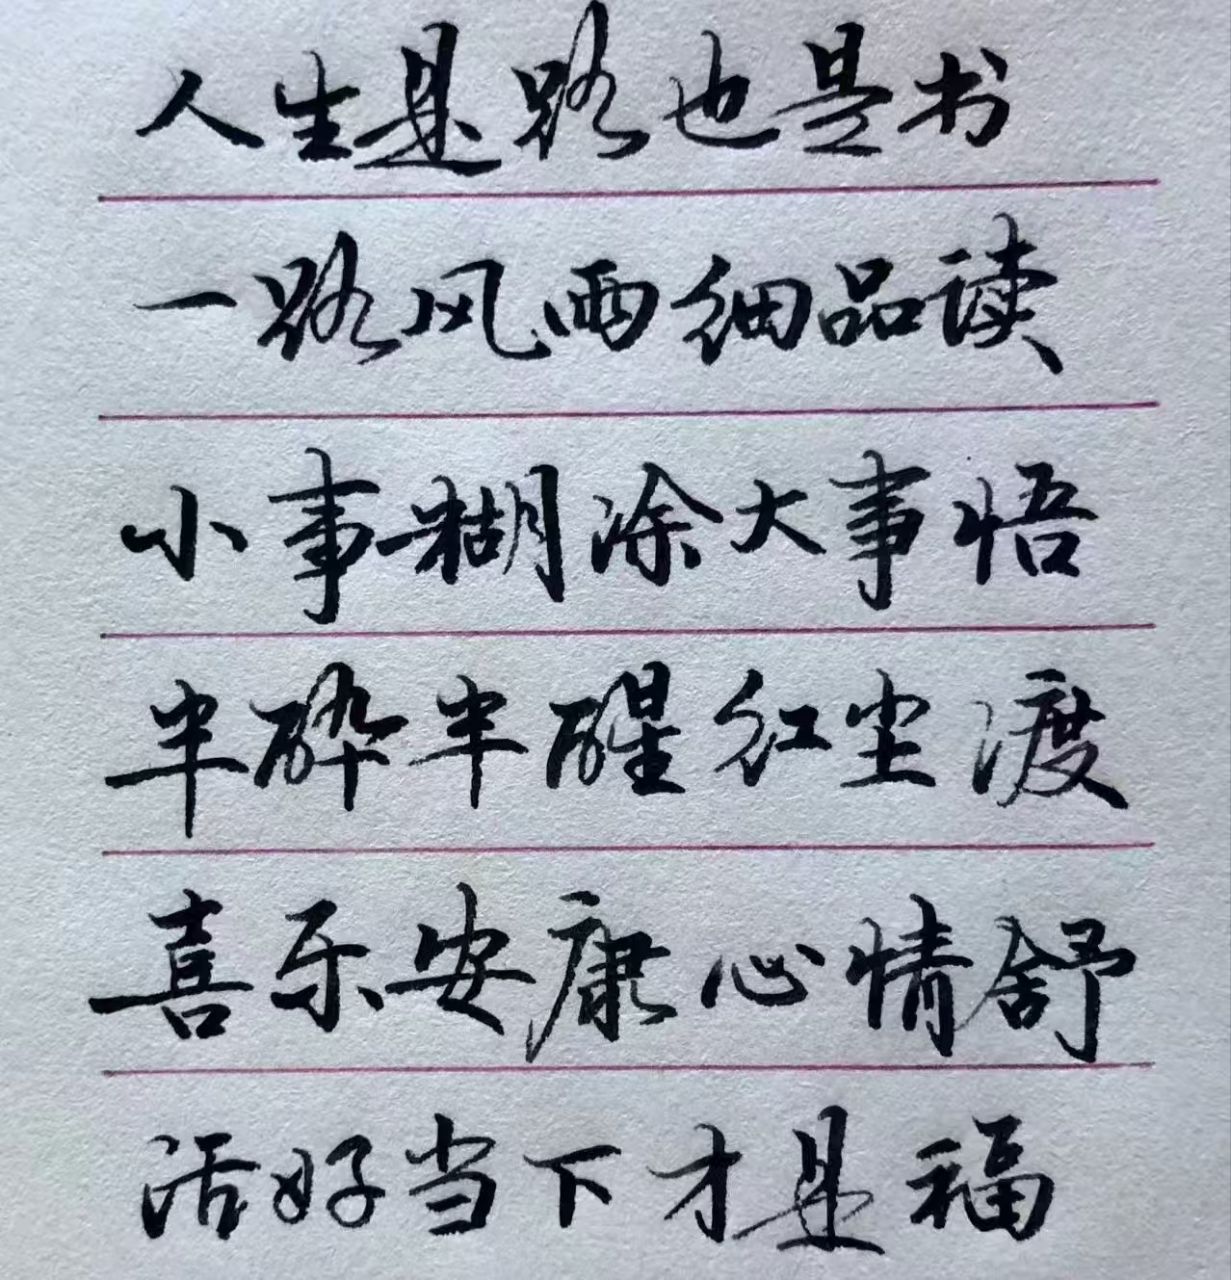 人生是路也是书
一路风雨细品读
小事糊涂大事悟
半醉半醒红尘渡
喜乐安康心情舒
活好当下才是福